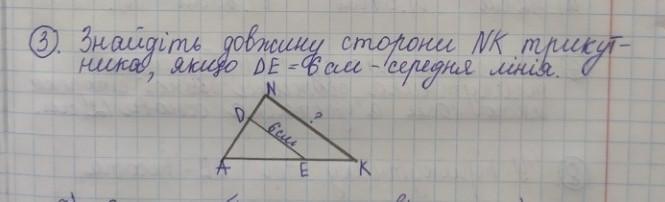 3. Знайдіть довжину сторони NK трикут-
ника, якщо DE = 6 см - середня лінія.
N
D
6 см
?
A
E
K